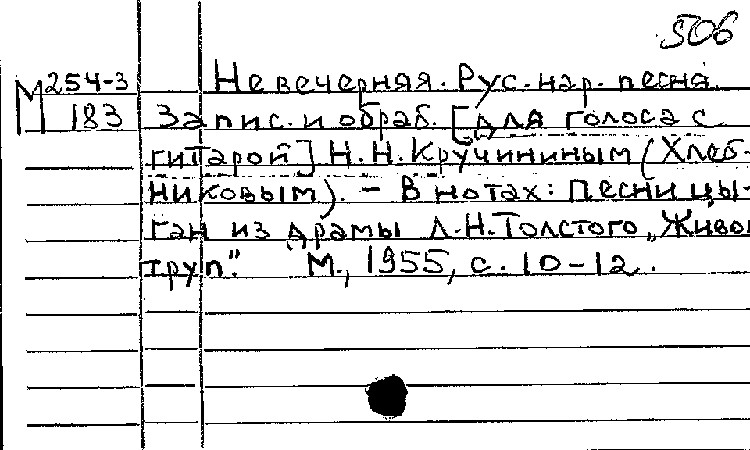 506
М 254-3 Невечерняя. Рус. нар. песня.
183 Запис. и обраб. [для голоса с
гитарой] Н.Н. Кручининым (Хлеб-
никовым). - В нотах: Песни цы-
ган из драмы Л.Н. Толстого „Живой
труп". М., 1955, с. 10-12.